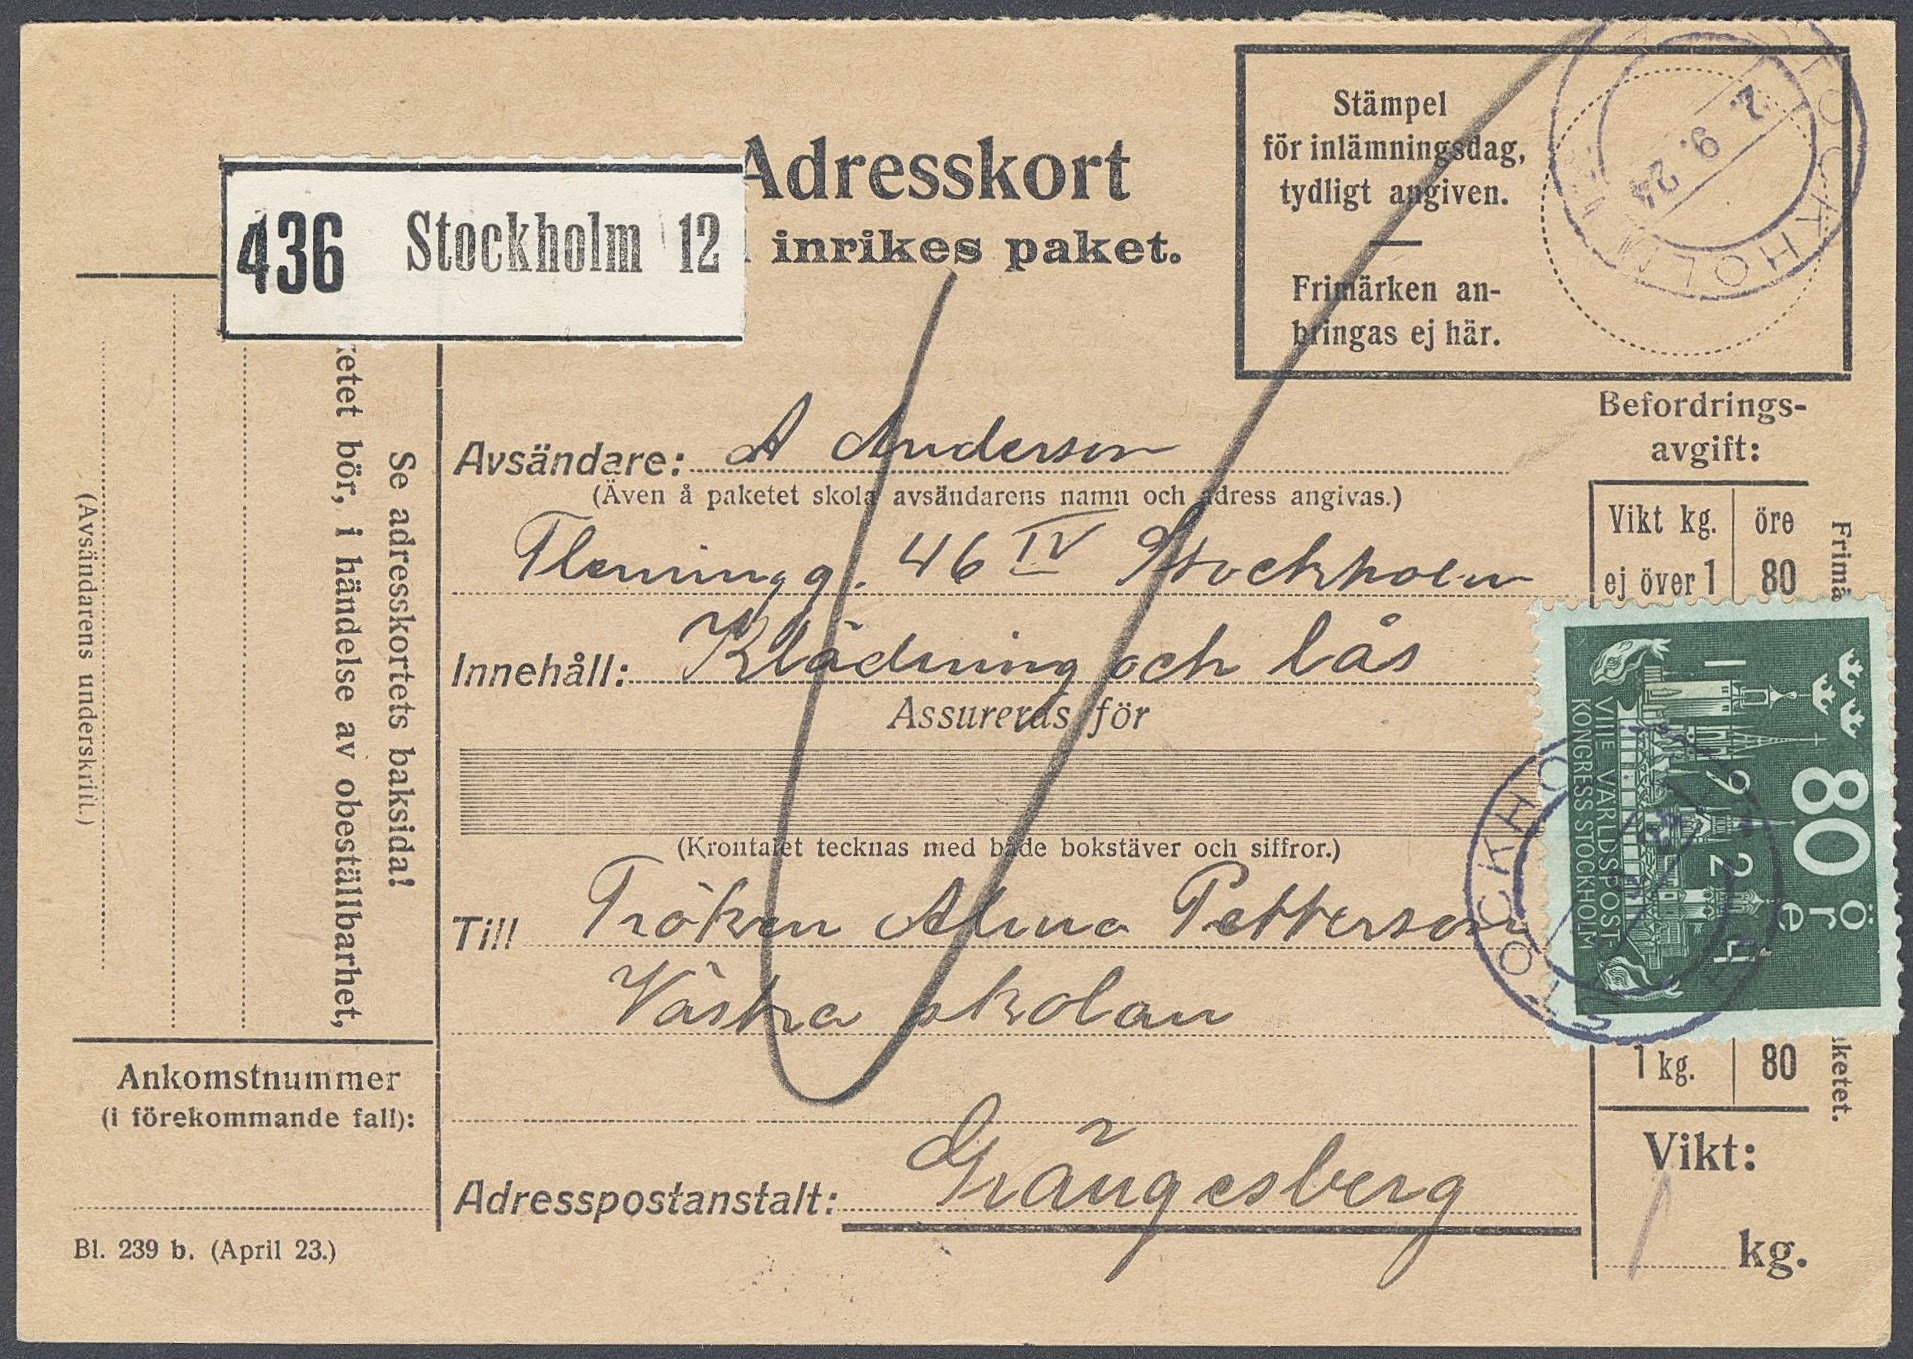 Adresskort
inrikes paket.
436 Stockholm 12
Stämpel
för inlämningsdag,
tydligt angiven.
Frimärken an-
bringas ej här.
STOCKHOLM
2. 9. 24
Se adresskortets baksida!
ketet bör, i händelse av obeställbarhet,
(Avsändarens underskrift.)
Avsändare: A Anderson
(Även å paketet skola avsändarens namn och adress angivas.)
Flemingg. 46 IV Stockholm
Innehåll: Klädning och lås
Assureras för
(Krontalet tecknas med både bokstäver och siffror.)
Till Fröken Alma Petterson
Västra skolan
Adresspostanstalt: Grängesberg
Befordrings-
avgift:
Vikt kg. öre
ej över 1 80
1 kg. 80
Frimä
ketet.
Vikt:
1
kg.
80 öre
1924
VIIIE VÄRLDSPOST-
KONGRESS STOCKHOLM
STOCKHO
Ankomstnummer
(i förekommande fall):
Bl. 239 b. (April 23.)